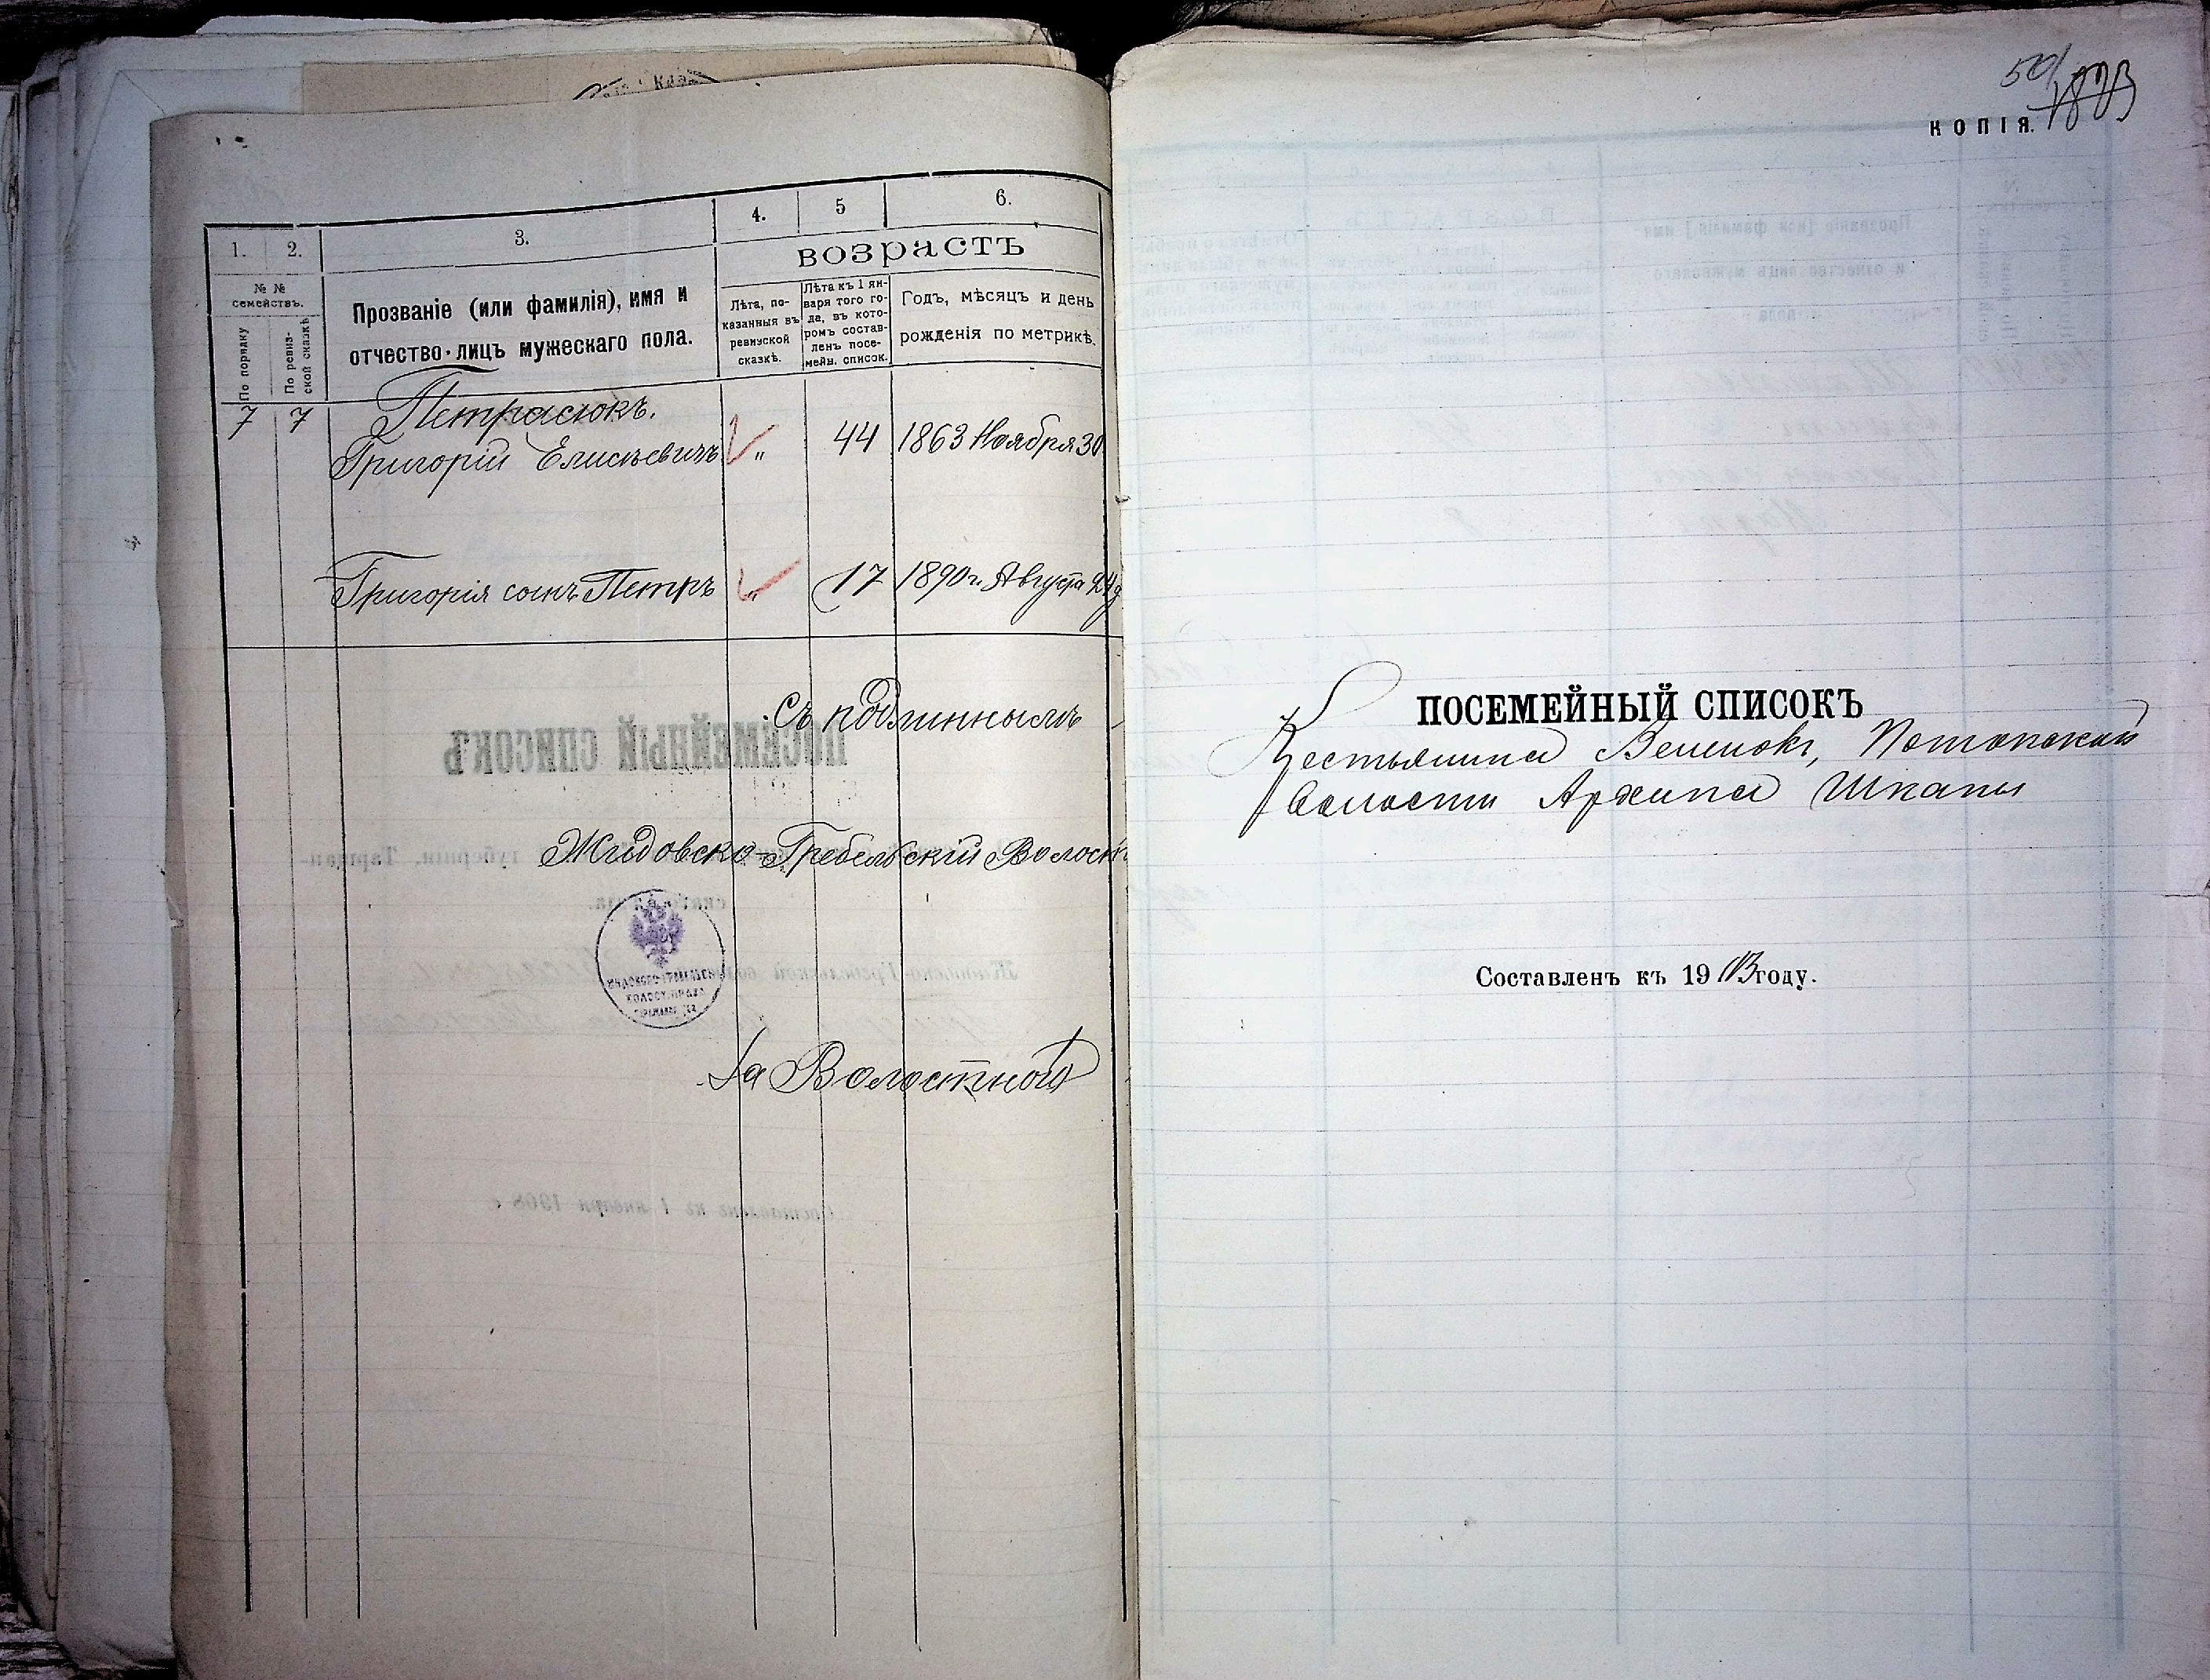 1.
2.
3.
4.
5
6.
№ №
семействъ.
По порядку
По ревиз-
ской сказкѣ
Прозваніе (или фамилія), имя и
отчество лицъ мужескаго пола.
возрастъ
Лѣта, по-
казанныя въ
ревизской
сказкѣ.
Лѣта къ 1 ян-
варя того го-
да, въ кото-
ромъ состав-
ленъ посе-
мейн. список.
Годъ, мѣсяцъ и день
рожденія по метрикѣ.
7 7 Петрасюкъ.
Григорій Елисѣевичъ „ 44 1863 Ноября 30
Григорія сынъ Петръ „ 17 1890 г. Августа 24 д
Съ подлиннымъ
Жидовско-Гребельскій Волостн
За Волостного
КОПІЯ.
ПОСЕМЕЙНЫЙ СПИСОКЪ
Архипа Шкапы
Составленъ къ 1913 году.